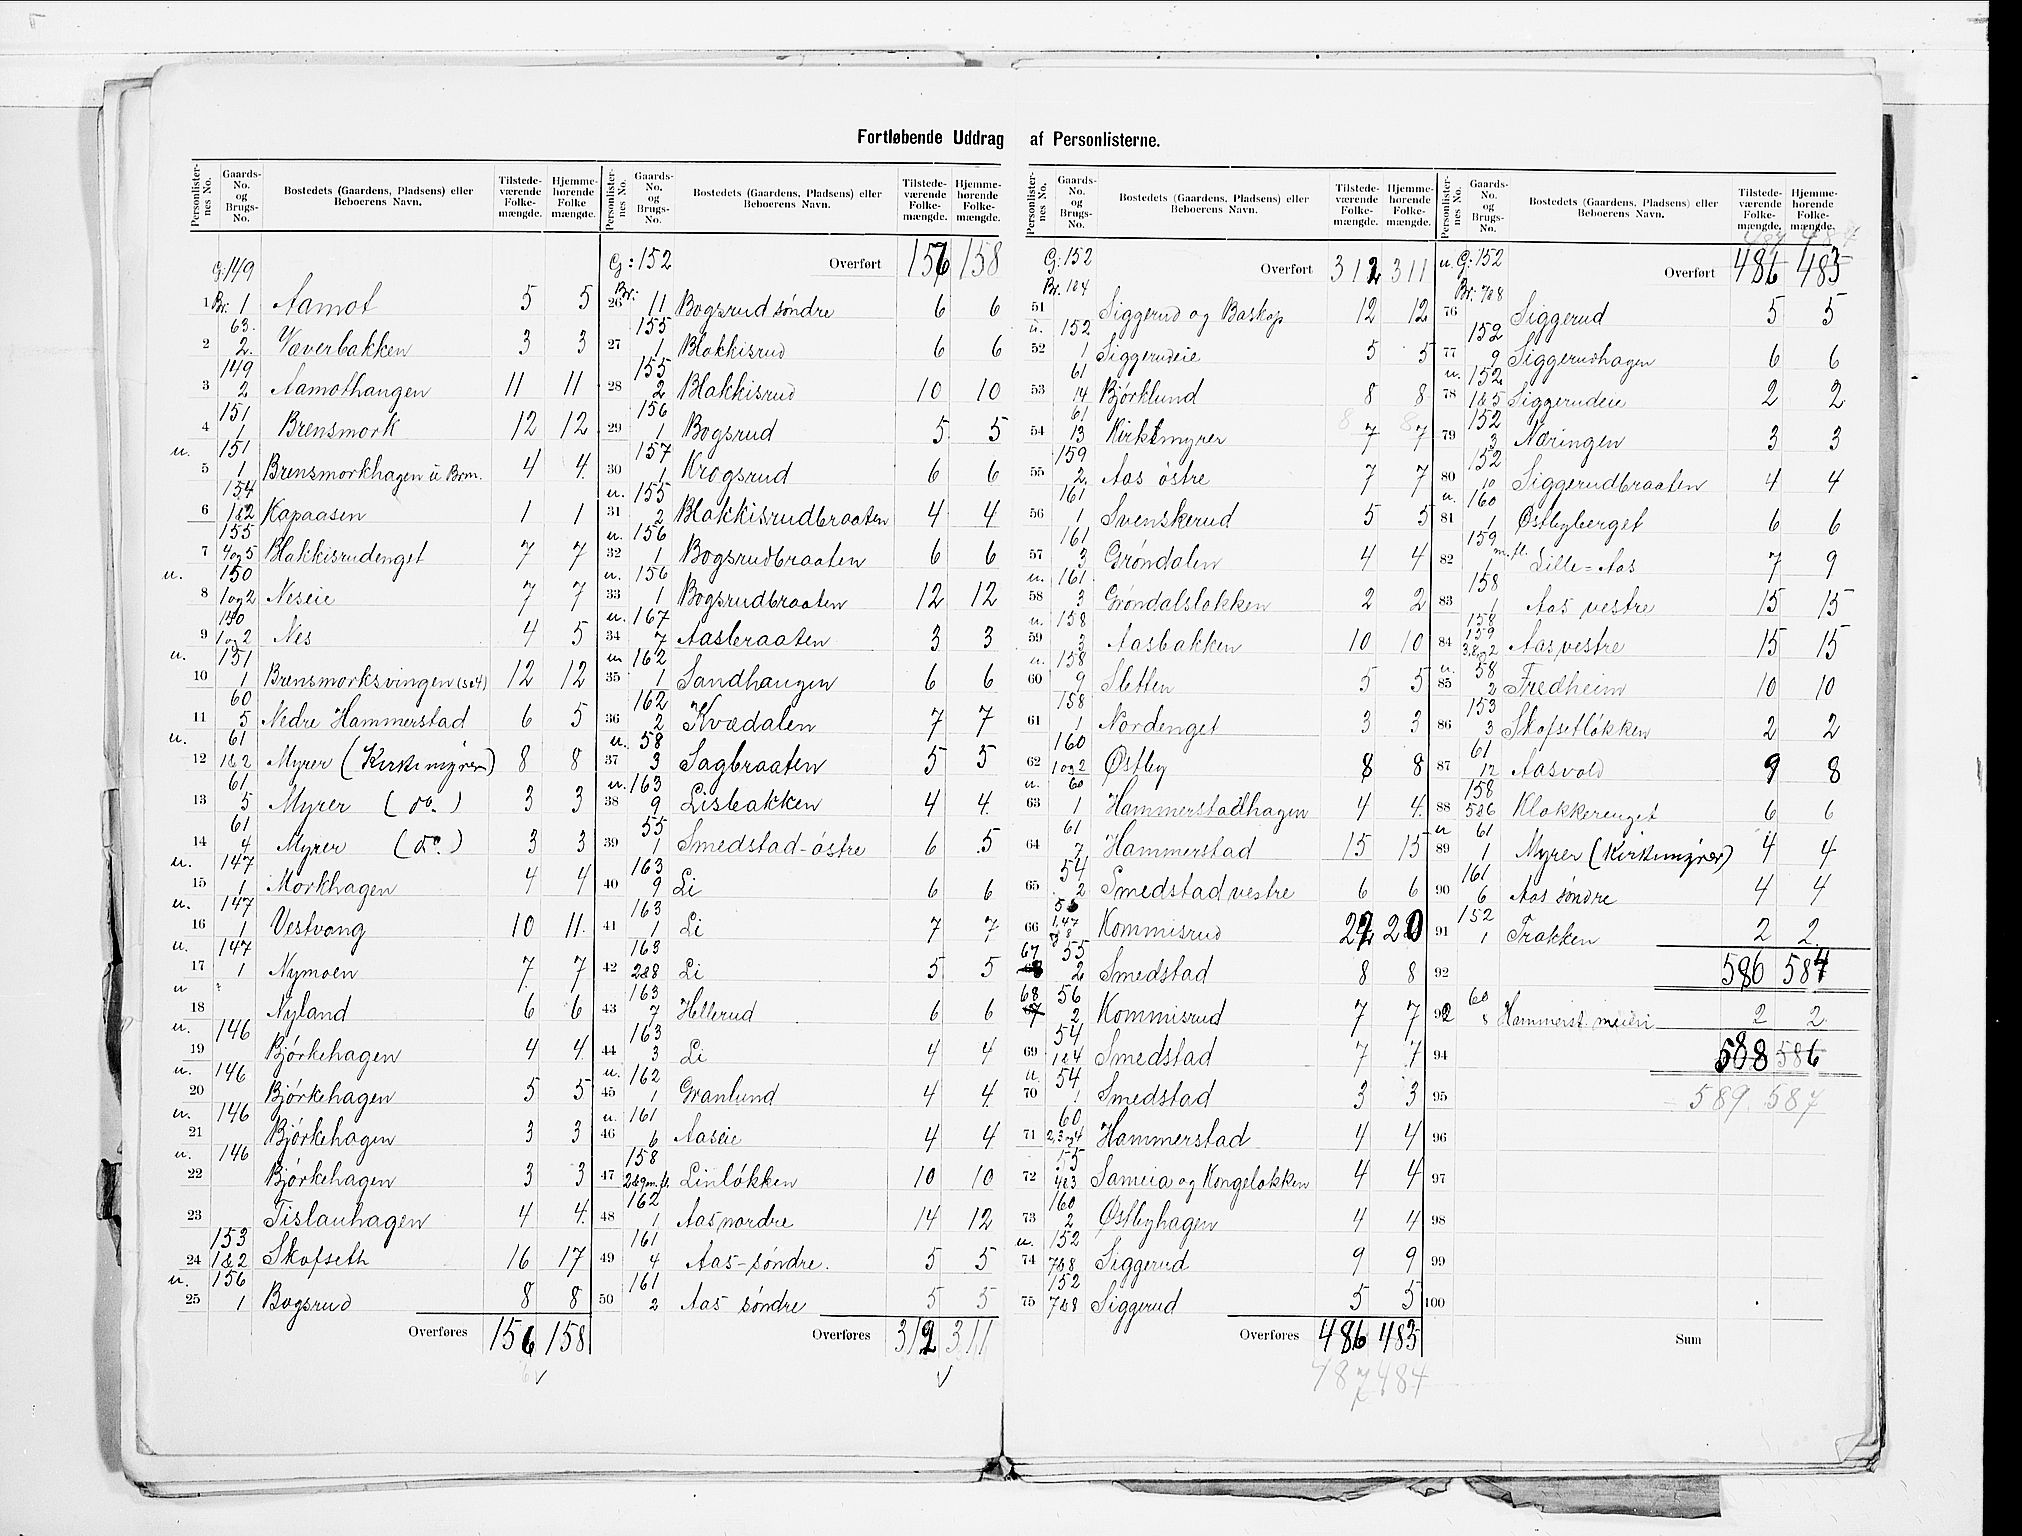 Fortløbende Uddrag af Personlisterne.
Personlister-nes No. Gaards-No. og Brugs-No. Bostedets (Gaardens, Pladsens) eller Beboerens Navn. Tilstede-værende Folke-mængde. Hjemme-hørende Folke mængde.
G: 149
1 Br: 1 Aamot 5 5
2 63. 2. Væverbakken 3 3
3 149 2 Aamothaugen 11 11
4 151 1 Brensmork 12 12
5 u. 151 1 Brensmorkhagen u Brm. 4 4
6 154 1&2 Kapaasen 1 1
7 155 4og5 Blakkisrudenget 7 7
8 u. 150 1og2 Neseie 7 7
9 150 1og2 Nes 4 5
10 u. 151 1 Brensmorksvingen (se4) 12 12
11 60 5 Nedre Hammerstad 6 5
12 u. 61 1&2 Myrer (Kirkemyrer) 8 8
13 61 5 Myrer (do.) 3 3
14 61 4 Myrer (do.) 3 3
15 u. 147 1 Morkhagen 4 4
16 u. 147 1 Vestvang 10 11
17 u. 147 1 Nymoen 7 7
18 u " Nyland 6 6
19 u. 146 Bjørkehagen 4 4
20 u. 146 Bjørkehagen 5 5
21 u. 146 Bjørkehagen 3 3
22 u. 146 Bjørkehagen 3 3
23 Tislauhagen 4 4
24 153 1&2 Skofseth 16 17
25 u. 156 1 Bogsrud 8 8
Overføres 156 158
Personlister-nes No. Gaards-No. og Brugs-No. Bostedets (Gaardens, Pladsens) eller Beboerens Navn. Tilstede-værende Folke-mængde. Hjemme-hørende Folke-mængde.
G: 152 Overført 156 158
26 Br: 11 Bogsrud søndre 6 6
27 155 1 Blakkisrud 6 6
28 155 2 Blakkisrud 10 10
29 156 1 Bogsrud 5 5
30 157 1 Krogsrud 6 6
31 u. 155 2 Blakkisrudbraaten 4 4
32 u. 156 1 Bogsrudbraaten 6 6
33 u. 156 1 Bogsrudbraaten 12 12
34 u. 167 7 Aasbraaten 3 3
35 u 162 1 Sandhaugen 6 6
36 162 2 Kvædalen 7 7
37 u. 58 3 Sagbraaten 5 5
38 u. 163 9 Lisbakken 4 4
39 55 1 Smedstad-østre 6 5
40 163 9 Li 6 6
41 163 1 Li 7 7
42 163 2&8 Li 5 5
43 163 7 Hellerud 6 6
44 163 3 Li 4 4
45 u. 162 1 Granlund 4 4
46 u. 161 6 Aaseie 4 4
47 158 2&9 m.fl. Linløkken 10 10
48 162 1 Aas nordre 14 12
49 161 4 Aas-søndre. 5 5
50 161 2 Aas søndre 5 5
Overføres 312 311
Personlister-nes No. Gaards-No. og Brugs-No. Bostedets (Gaardens, Pladsens) eller Beboerens Navn. Tilstede-værende Folke-mængde. Hjemme-hørende Folke-mængde.
G: 152 Overført 312 311
51 Br. 1&4 Siggerud og Baskop 12 12
52 u. 152 1 Siggerudeie 5 5
53 61 14 Bjørklund 8 8
54 61 13 Kirkemyrer 8 7 8 7
55 159 2 Aas østre 7 7
56 161 1 Svenskerud 5 5
57 161 3 Grøndalen 4 4
58 u. 161 3 Grøndalsløkken 2 2
59 u. 158 3 Aasbakken 10 10
60 u. 158 9 Sletten 5 5
61 158 1 Nordenget 3 3
62 160 1og2 Østby 8 8
63 u. 60 1 Hammerstadhagen 4 4
64 61 7 Hammerstad 15 15
65 54 2 Smedstad vestre 6 6
66 Kommisrud 22 20
67 55 2 Smedstad 8 8
68 56 2 Kommisrud 7 7
69 54 1&4 Smedstad 7 7
70 u. 54 1 Smedstad 3 3
71 60 2,3og4 Hammerstad 4 4
72 55 4&3 Sameia og Kongeløkken 4 4
73 160 2 Østbyhagen 4 4
74 u. 152 7&8 Siggerud 9 9
75 152 7&8 Siggerud 5 5
Overføres 486 483
487 484
Personlister-nes No. Gaards-No. og Brugs-No. Bostedets (Gaardens, Pladsens) eller Beboerens Navn. Tilstede-værende Folke-mængde. Hjemme-hørende Folke-mængde.
u. G: 152 Overført 486 483
76 Br: 7&8 Siggerud 5 5
77 152 9 Siggerudhagen 6 6
78 u. 152 1&5 Siggerudeie 2 2
79 152 3 Næringen 3 3
80 152 10 Siggerudbraaten 4 4
81 u. 160 1 Østbyberget 6 6
82 159 1 m.fl. Lille-Aas 7 9
83 158 1 Aas vestre 15 15
84 158 159 3.8og2 Aas vestre 15 15
85 u 58 2 Fredheim 10 10
86 153 3 Skofsetløkken 2 2
87 61 12 Aasvold 9 8
88 158 5&6 Klokkerenget 6 6
89 u 61 1 Myrer (Kirkemyrer) 4 4
90 161 6 Aas søndre 4 4
91 152 1 Trakken 2 2
92 586 584
92 60 8 Hammerst. meieri 2 2
94 588 586
95 589 587
96
97
98
99
100
Sum